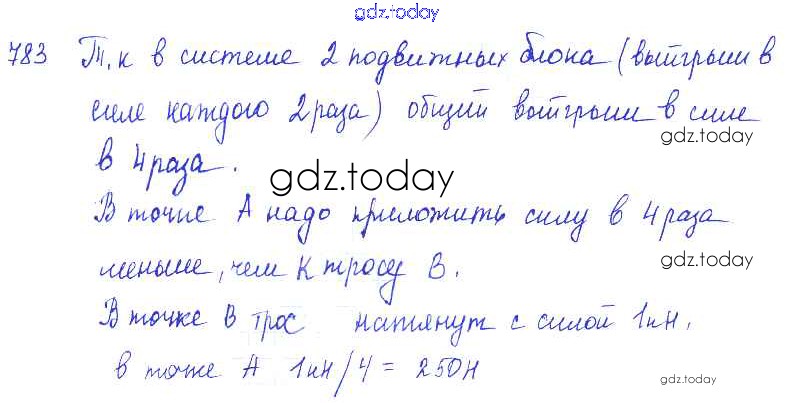 gdz.today
783 Т.к в системе 2 подвижных блока (выйгрыш в
силе каждого 2 раза) общий выйгрыш в силе
gdz.today
в 4 раза.
gdz.today
В точке А надо приложить силу в 4 раза
меньше, чем к тросу В.
gdz.today
В точке В трос натянут с силой 1кН,
в точке А 1кН/4 = 250Н
gdz.today